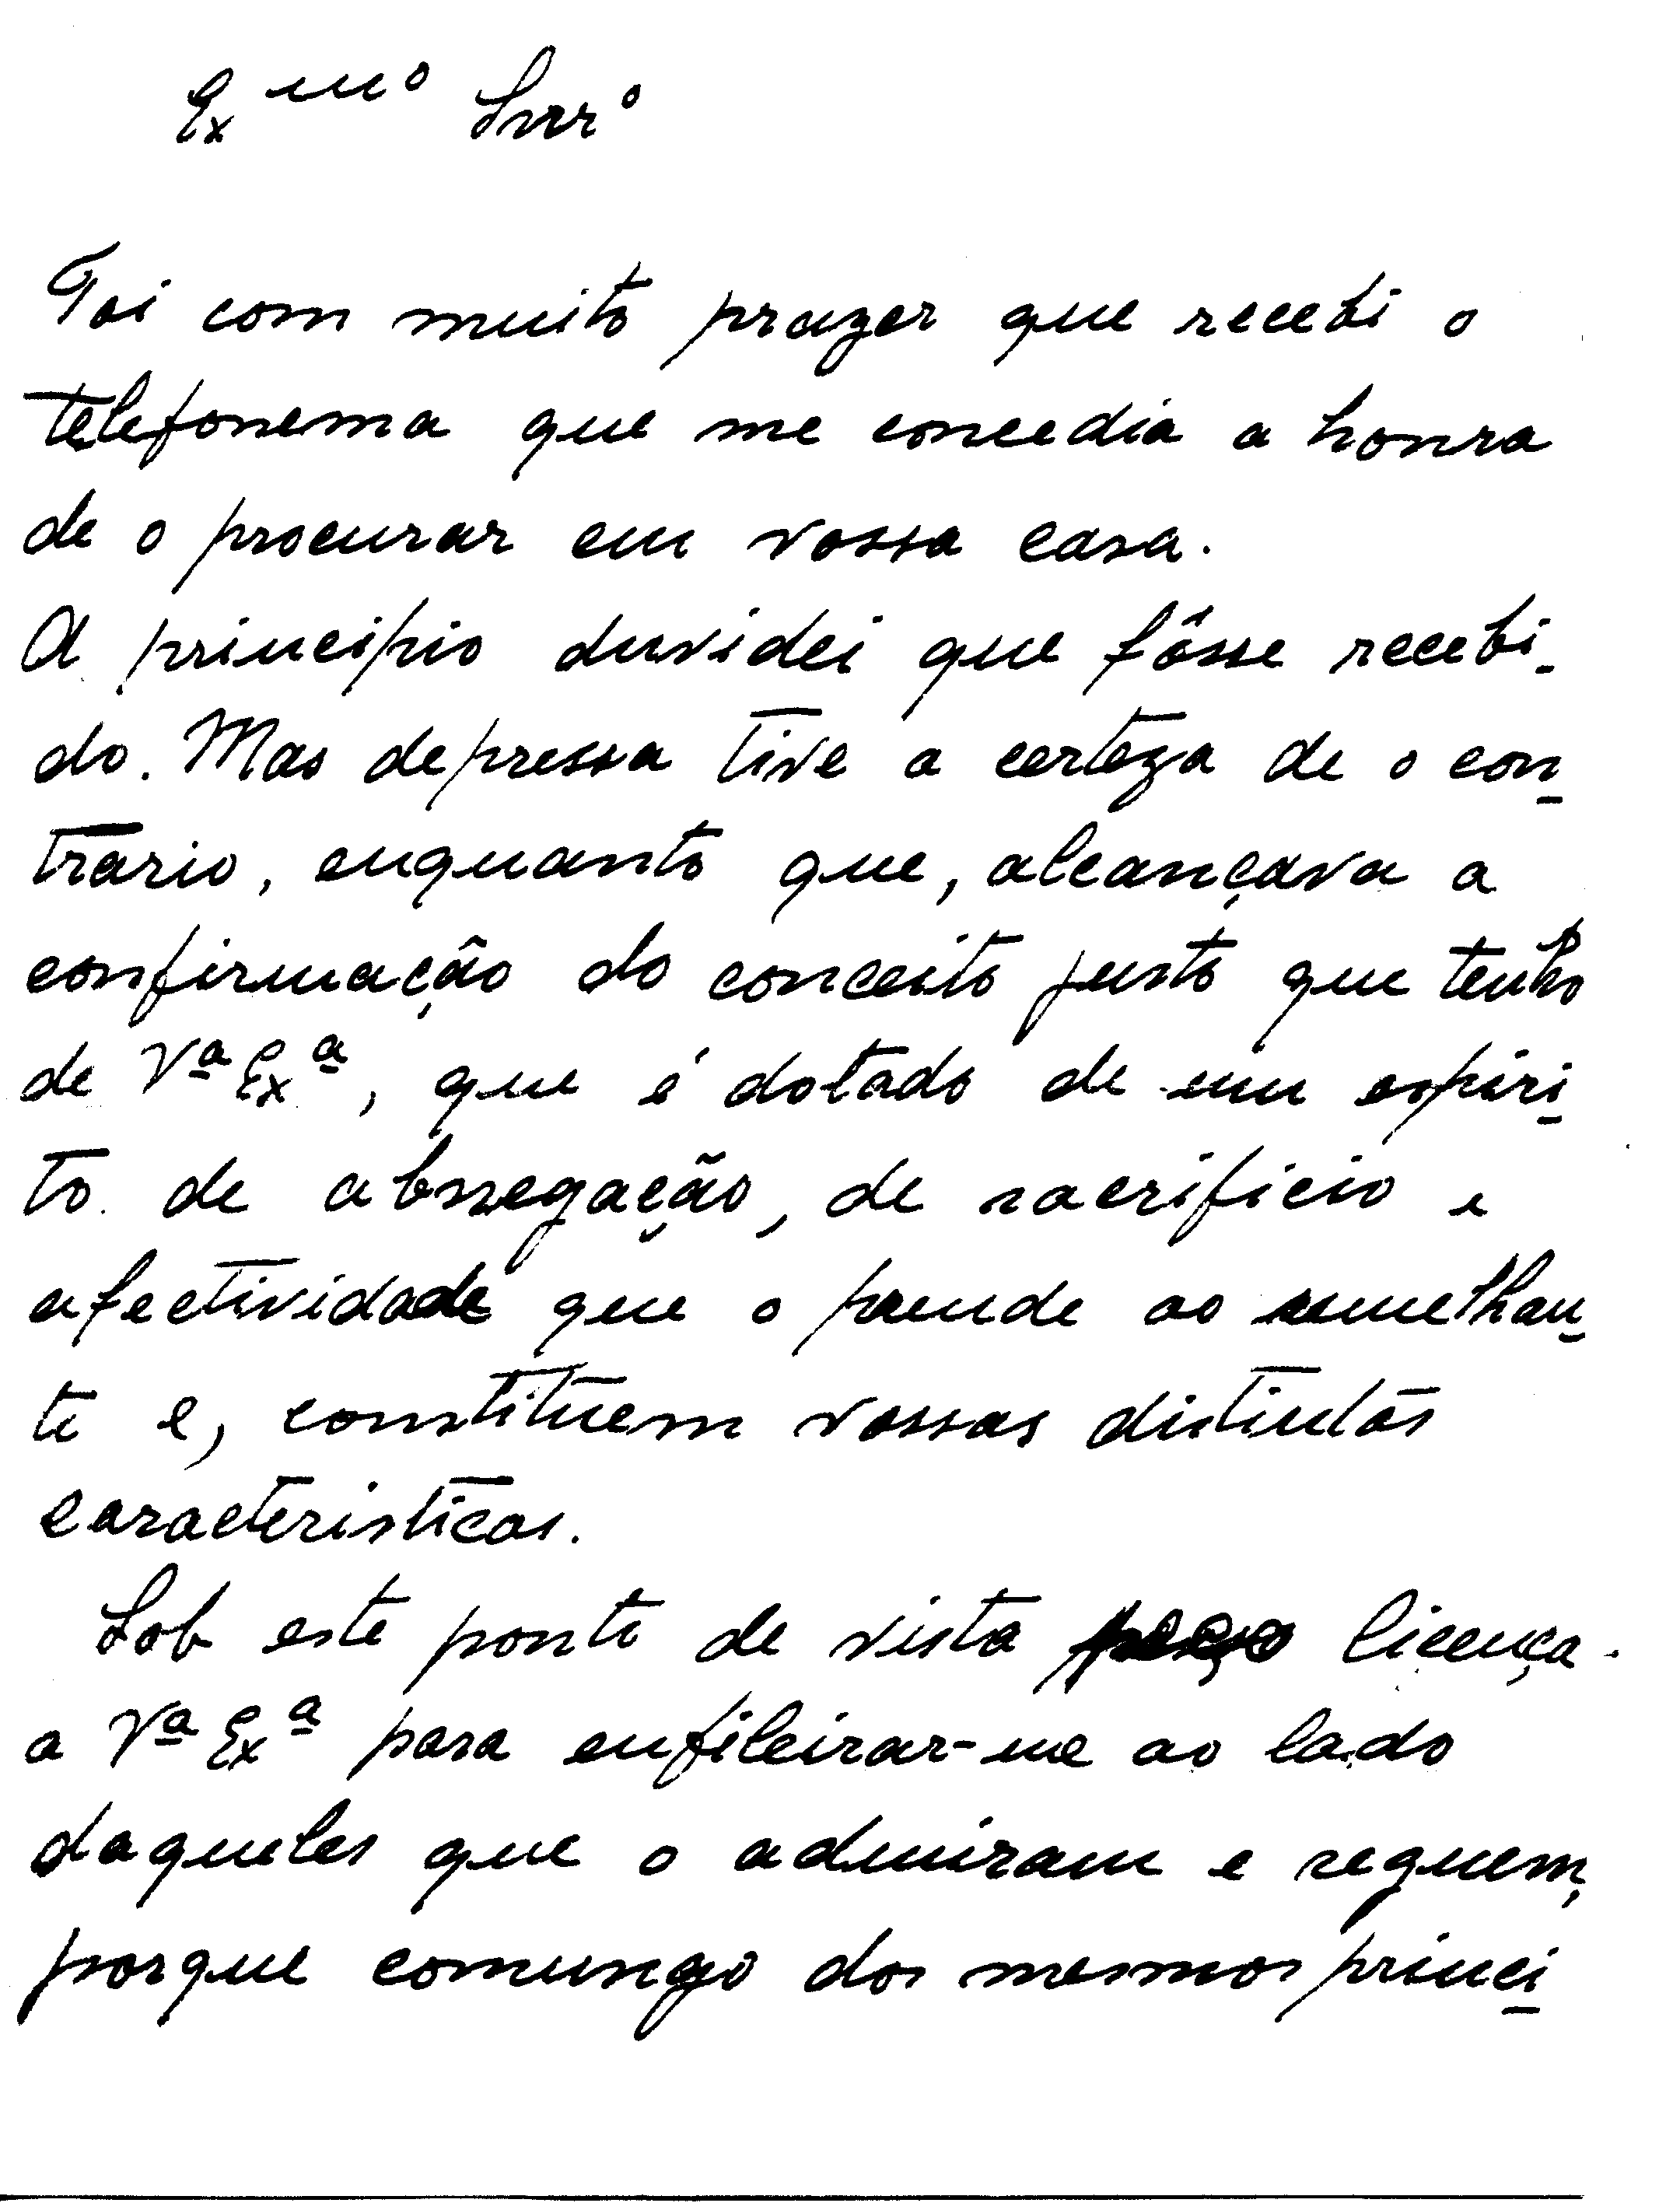 Exmº Snrº
Foi com muito prazer que recebi o
telefonema que me concedia a honra
de o procurar em vossa casa.
A principio duvidei que fôsse recebi-
do. Mas depressa tive a certeza de o con-
trário, enquanto que, alcançava a
confirmação do conceito justo que tenho
de Vª Exª, que é dotado de um espiri-
to de abnegação, de sacrificio e
afectividade que o prende ao semelhan-
te e, constituem vossas distintas
caracteristicas.
Sob este ponto de vista peço licença
a Vª Exª para enfileirar-me ao lado
daqueles que o admiram e seguem,
porque comungo dos mesmos princi-